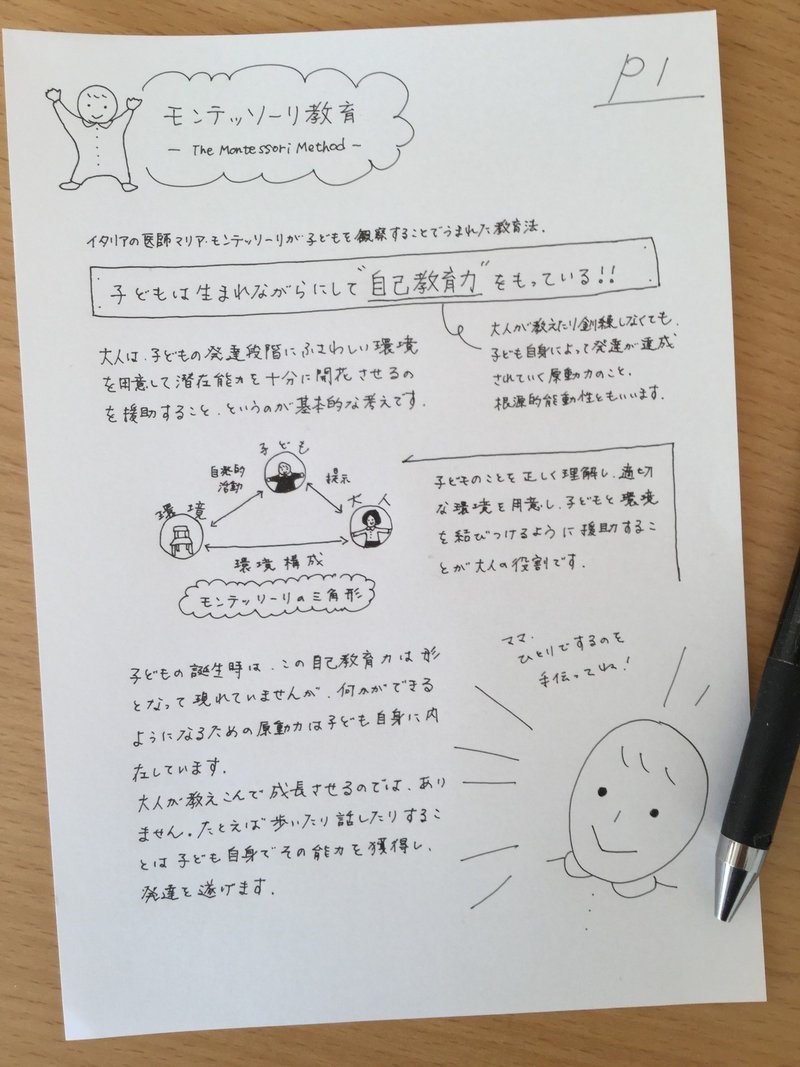 P1
モンテッソーリ教育
― The Montessori Method ―
イタリアの医師マリア・モンテッソーリが子どもを観察することでうまれた教育法.
子どもは生まれながらにして"自己教育力"をもっている!!
大人が教えたり訓練しなくても、
子ども自身によって発達が達成
されていく原動力のこと.
根源的能動性ともいいます.
大人は、子どもの発達段階にふさわしい環境
を用意して潜在能力を十分に開花させるの
を援助すること、というのが基本的な考えです.
子ども
自発的
活動
提示
環境
大人
環境構成
モンテッソーリの三角形
子どものことを正しく理解し、適切
な環境を用意し、子どもと環境
を結びつけるように援助するこ
とが大人の役割です.
子どもの誕生時は、この自己教育力は形
となって現れていませんが、何かができる
ようになるための原動力は子ども自身に内
在しています.
大人が教えこんで成長させるのでは、あり
ません。たとえば歩いたり話したりするこ
とは子ども自身でその能力を獲得し、
発達を遂げます.
ママ、
ひとりでするのを
手伝ってね!